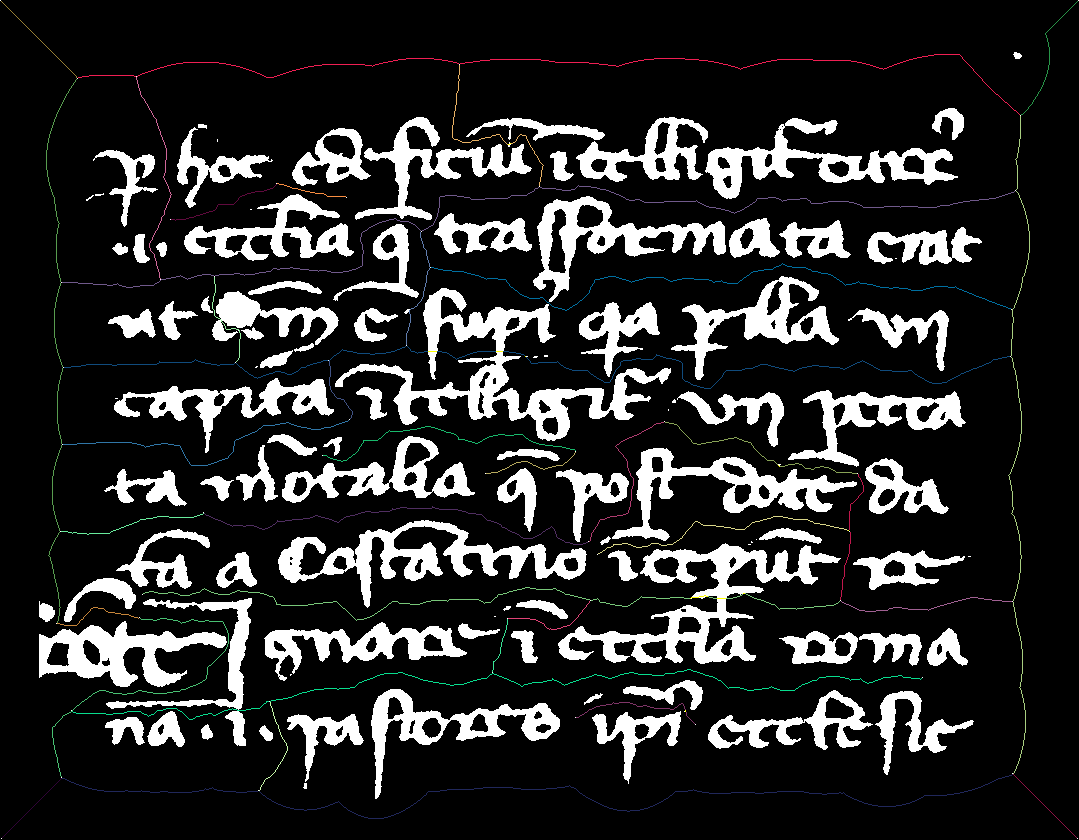 p hoc edificiũ ĩtelligit̃ turre
.i. ecc̃ia q̃ trasformata erat
ut c̃ sup̱i qa p illa vii
capita ĩtelligit̃ vii pecca
ta mõtalia q̃ post dote da
tã a Costãtino ĩcepũt re
gnare ĩ ecc̃ia roma
nã .i. pastores ip̃i ecclesie